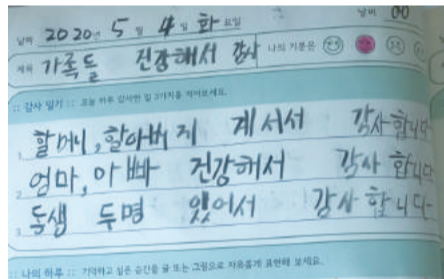 날짜 2020년 5월 4일 화요일 날씨 00
제목 가족들 건강해서 감사 나의 기분은
:: 감사 일기 :: 오늘 하루 감사한 일 3가지를 적어보세요.
1. 할머니, 할아버지 계셔서 감사합니다
2. 엄마, 아빠 건강해서 감사합니다
3. 동생 두명 있어서 감사합니다
:: 나의 하루 :: 기억하고 싶은 순간을 글 또는 그림으로 자유롭게 표현해 보세요.